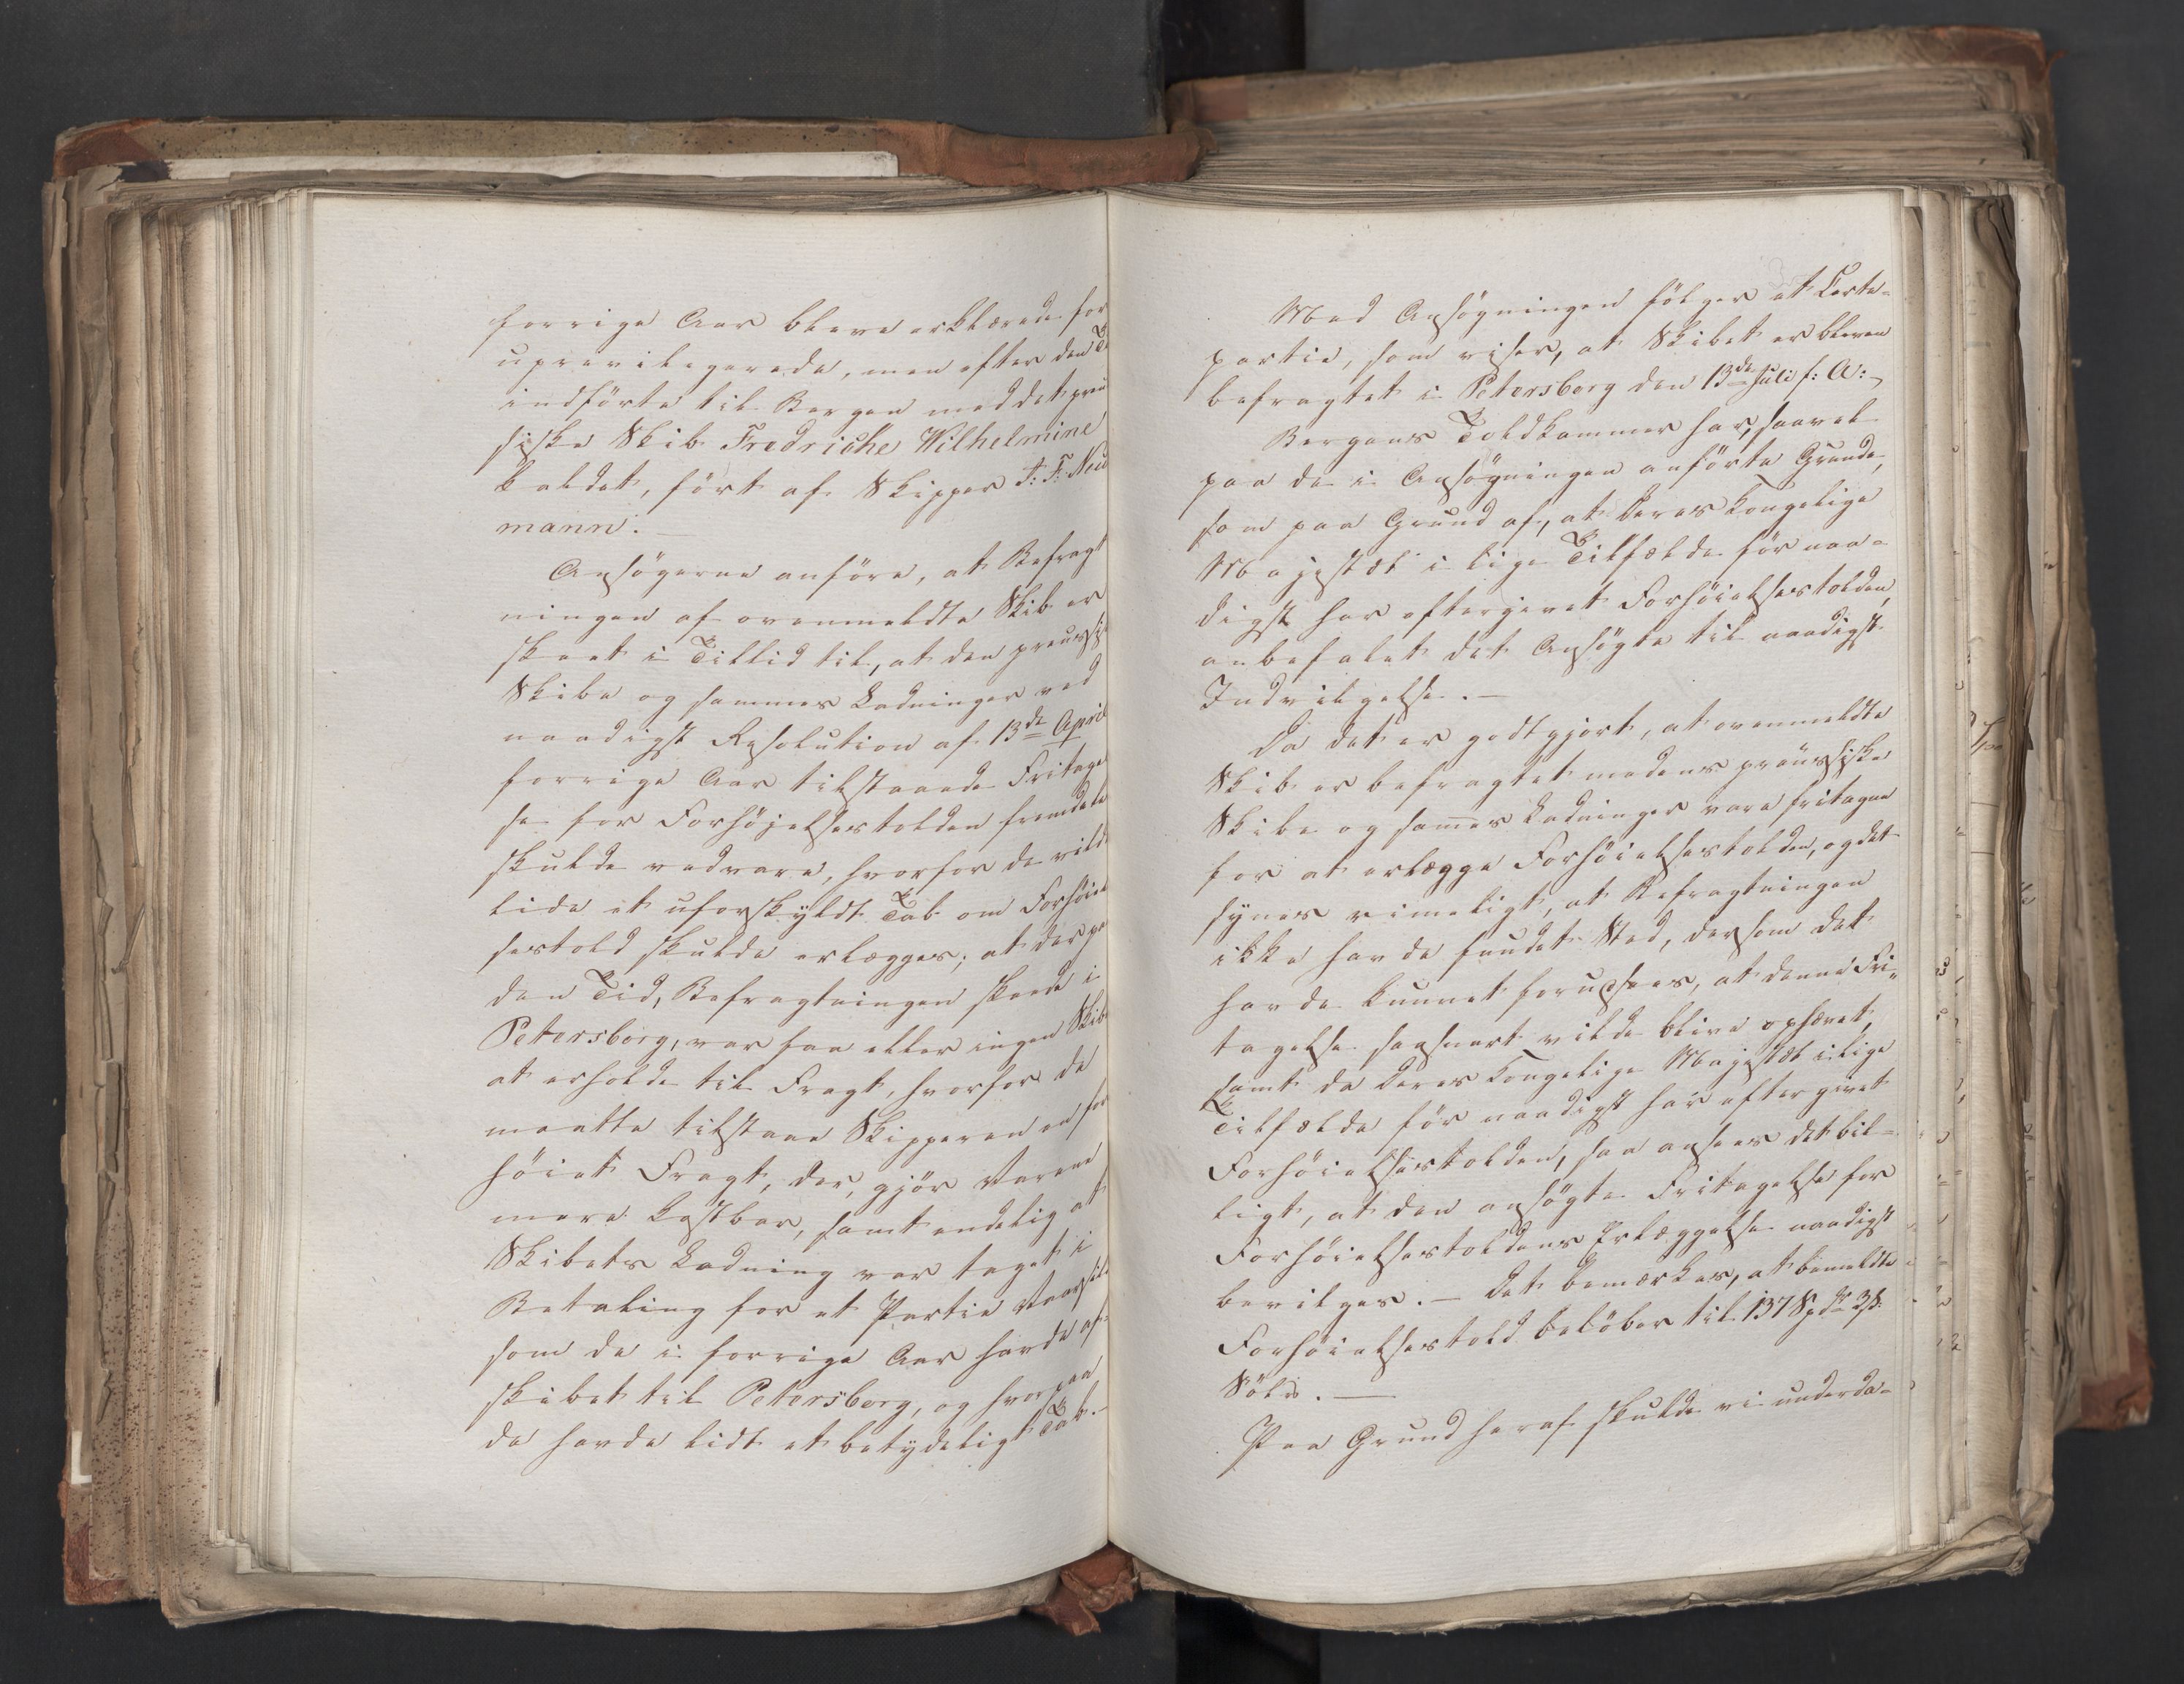 forrige Aar bleve erklærede for
uprivilegerede, men efter den Tid
indførte til Bergen med det preu
siske Skib Fredriche Wilhelmine
kaldet, ført af Skipper J: F: Neu
mann. —
Ansøgerne anføre, at Befragt
ningen af ovenmeldte Skib er
skeet i Tillid til, at den preussi
Skibe og sammes Ladninger ved
naadigst Resolution af 13de April
forrige Aar tilstaaede Fritagel
se for Forhøjelsestolden fremdele
skulde vedvare, hvorfor de vilde
lide et uforskyldt Tab om Forhøiel
sestold skulde erlægges; at der paa
den Tid, Befragtningen skeede i
Petersborg, var faa eller ingen Skibe
at erholde til Fragt, hvorfor de
maatte tilstaae Skipperen en for
høiet Fragt, der, gjør Varene
mere kostbar, samt endelig at
Skibets Ladning var taget i
Betaling for et Partie Vaarsild
som de i forrige Aar havde af-
skibet til Petersborg, og hvorpaa
de havde lidt et betydeligt Tab.—
Med Ansøgningen følger et Certe-
partie, som viser, at Skibet er bleven
befragtet i Petersborg den 13de Juli f: A:—
Bergens Toldkammer har, saavel
paa de i Ansøgningen anførte Grunde,
som paa Grund af, at Deres Kongelige
Majestæt i lige Tilfælde før naa-
digst har eftergivet Forhøielsestolden,
anbefalet det Ansøgte til naadigst
Indvilgelse. —
Da det er godtgjort, at ovenmeldte
Skib er befragtet medens preussiske
Skibe og sam̅es Ladninger vare fritagne
for at erlægge Forhøielsestolden, og det
synes rimeligt, at Befragtningen
ikke havde fundet Sted, dersom det
havde kunnet forudsees, at denne Fri-
tagelse saasnart vilde blive ophævet,
samt da Deres Kongelige Majestæt i lige
Tilfælde før naadigst har eftergivet
Forhøielsestolden, saa ansees det bil-
ligt, at den ansøgte Fritagelse for
Forhøielsestoldens Erlæggelse naadigst
bevilges. — Det bemærkes, at bemeldte
Forhøielsestold beløber til 137 Spdr 3ß.
Sølv. —
Paa Grund heraf skulde vi underda-